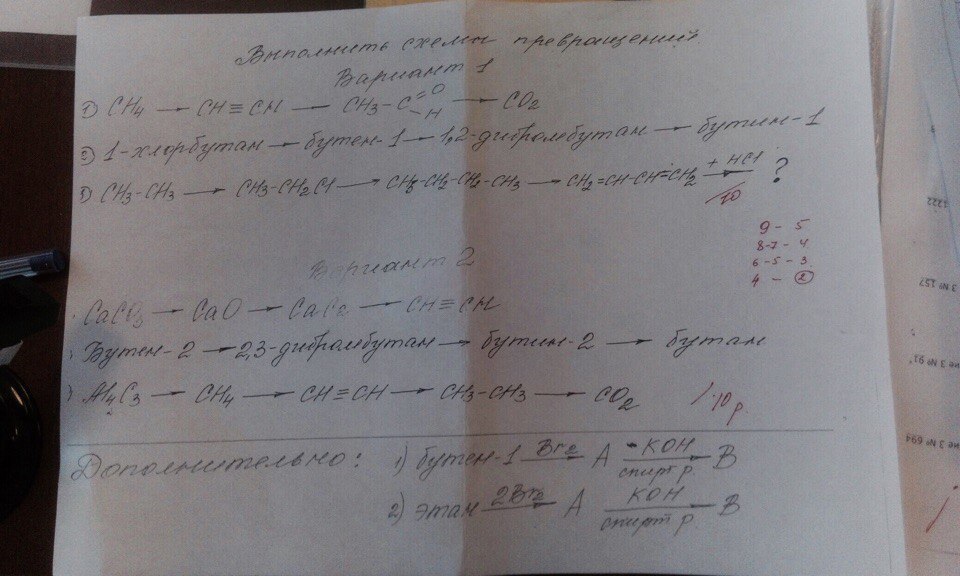 Выполнить схемы превращений
Вариант 1
1) CH4 → CH≡CH → CH3-C=O-H → CO2
2) 1-хлорбутан → бутен-1 → 1,2-дибромбутан → бутин-1
CH3-CH3 → CH3-CH2Cl → CH3-CH2-CH2-CH3 → CH2=CH-CH=CH2 + HCl → ?
/10
9 - 5
8-7 - 4
6-5 - 3
4 - 2
Вариант 2
CaCO3 → CaO → CaC2 → CH≡CH
Бутен-2 → 2,3-дибромбутан → бутин-2 → бутан
Al4C3 → CH4 → CH≡CH → CH3-CH3 → CO2
/10 р.
Дополнительно: 1) бутен-1 Br2 → A KOH спирт р. → B
2) этан 2Br2 → A KOH спирт р. → B
1222
3 № 157
ие 3 № 91
ие 3 № 694